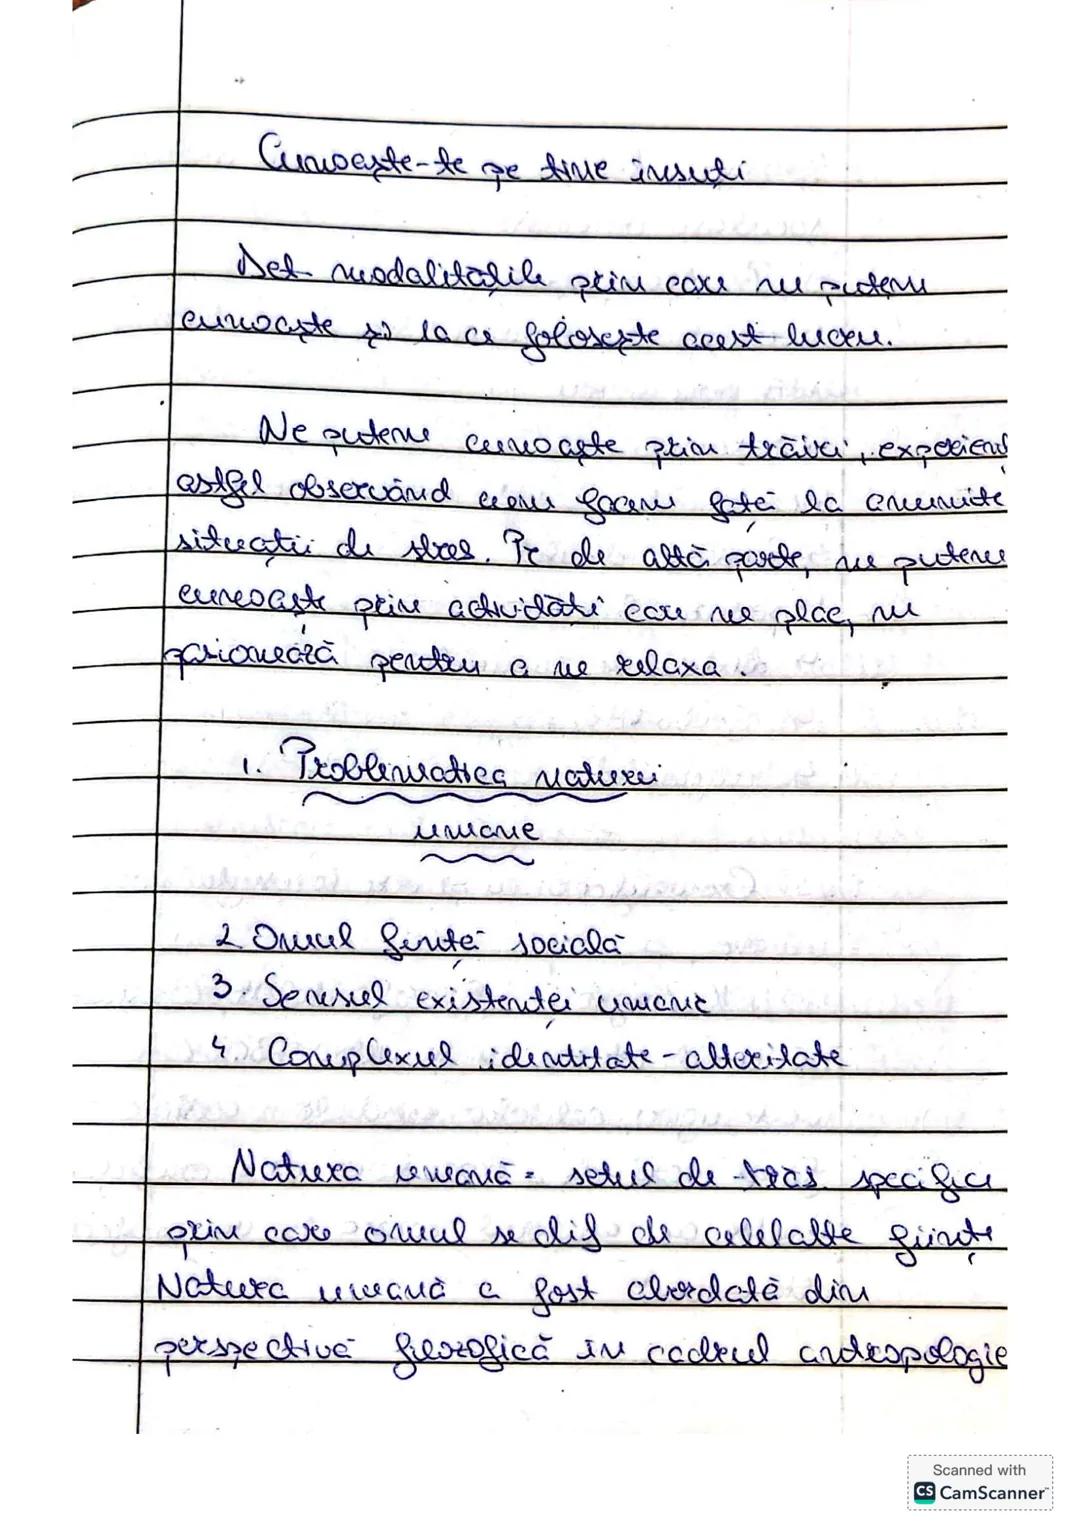 Cunoaște-te pe tine însuți
Det modalitățile prin care ne putem
cunoaște și la ce folosește acest lucru.
Ne putem cunoaște prin trăiri, experienț
astfel observând cum facem față la anumite
situații de stres. Pe de altă parte, ne putem
cunoaște prin activități care ne plac, ne
pasionează pentru a ne relaxa.
1. Problematica naturii
umane
2 Omul ființă socială
3. Sensul existenței umane
4. Complexul identitate-alteritate
Natura umană = setul de trăs. specifice
prin care omul se dif de celelalte ființe
Natura umană a fost abordată din
perspectivă filozofică în cadrul antropologie
Scanned with
CS CamScanner